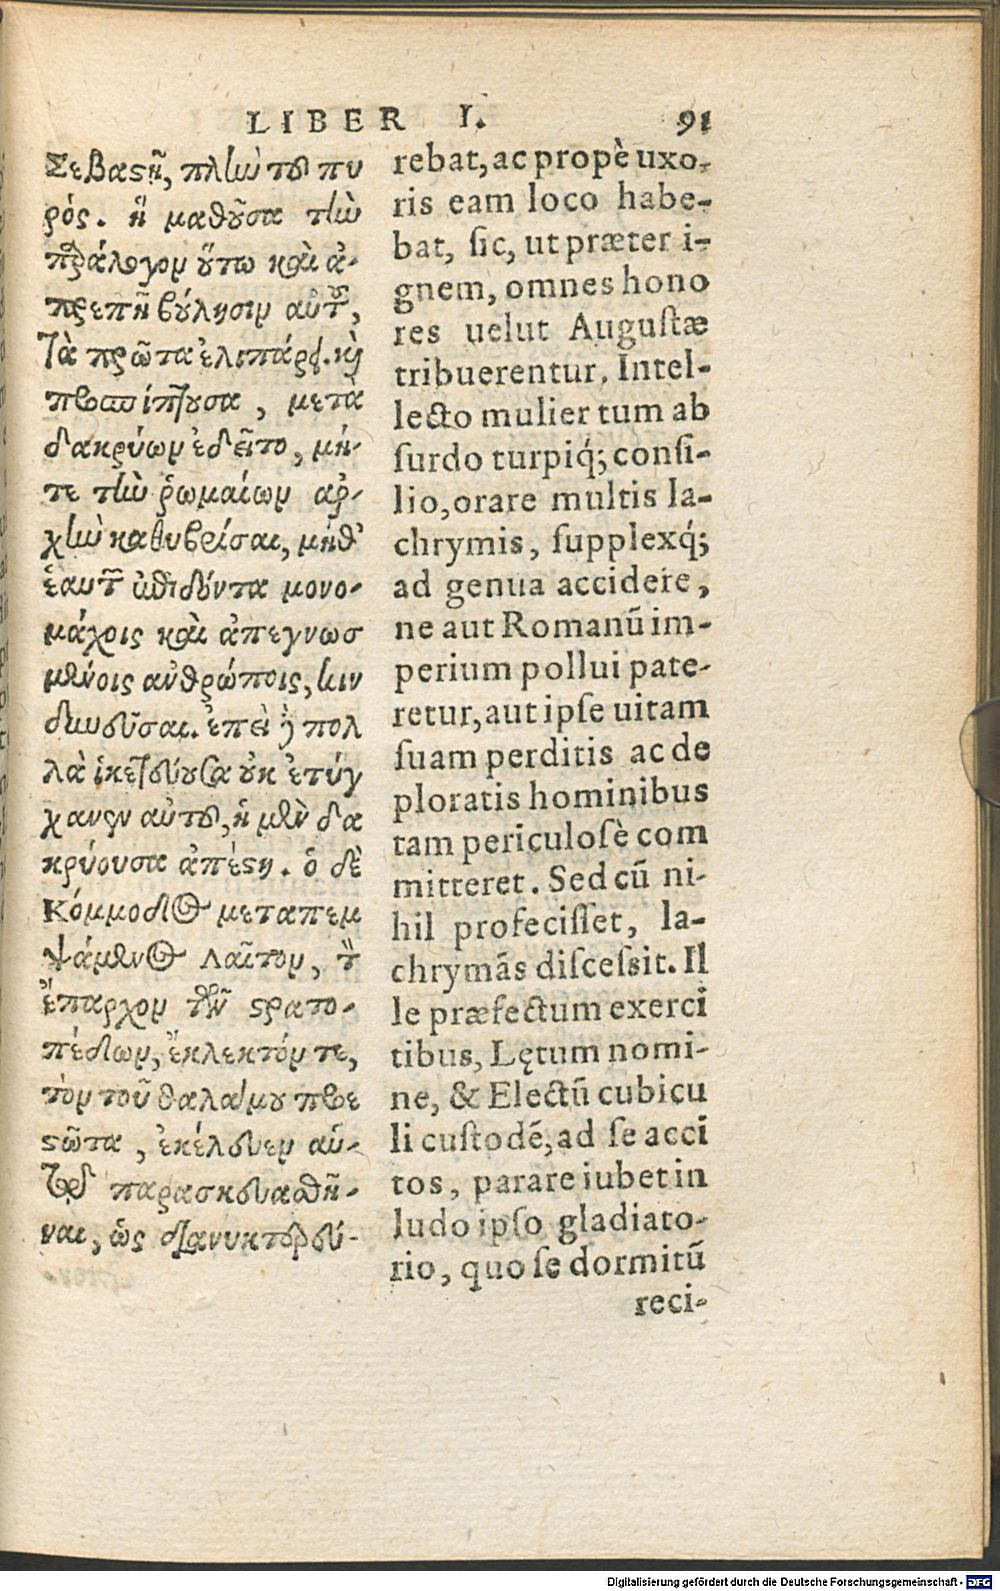 LIBER I. 91
Σεβαστῇ, πλὴν τοῦ πυ
ρός. ἣ μαθοῦσα τὴν
παράλογον οὕτω καὶ ἀ-
πρεπῆ βούλησιν αὐτοῦ,
τὰ πρῶτα ἐλιπάρει. καὶ
προσπίπτουσα, μετὰ
δακρύων ἐδεῖτο, μή-
τε τὴν ῥωμαίων ἀρ-
χὴν καθυβρίσαι, μήθ'
ἑαυτὸν ἐπιδόντα μονο-
μάχοις καὶ ἀπεγνωσ
μένοις ἀνθρώποις, κιν
δυνεῦσαι. ἐπεὶ δὲ πολ
λὰ ἱκετεύουσα οὐκ ἐτύγ
χανεν αὐτοῦ, ἡ μὲν δα
κρύουσα ἀπέστη. ὁ δὲ
Κόμμοδος μεταπεμ
ψάμενος Λαῖτον, τόν τε
ἔπαρχον τῶν στρατο-
πέδων, ἔκλεκτόν τε,
τὸν τοῦ θαλάμου προε
στῶτα, ἐκέλευεν αὑ-
τῷ παρασκευασθῆ-
ναι, ὡς διανυκτερεύ-
rebat, ac propè uxo-
ris eam loco habe-
bat, sic, ut præter i-
gnem, omnes hono
res uelut Augustæ
tribuerentur. Intel-
lecto mulier tum ab
surdo turpiq́; consi-
lio, orare multis la-
chrymis, supplexq́;
ad genua accidere,
ne aut Romanū im-
perium pollui pate-
retur, aut ipse uitam
suam perditis ac de
ploratis hominibus
tam periculosè com
mitteret. Sed cū ni-
hil profecisset, la-
chrymãs discessit. Il
le præfectum exerci
tibus, Lętum nomi-
ne, & Electū cubicu
li custodẽ, ad se acci
tos, parare iubet in
ludo ipso gladiato-
rio, quo se dormitū
reci-
Digitalisierung gefördert durch die Deutsche Forschungsgemeinschaft - DFG